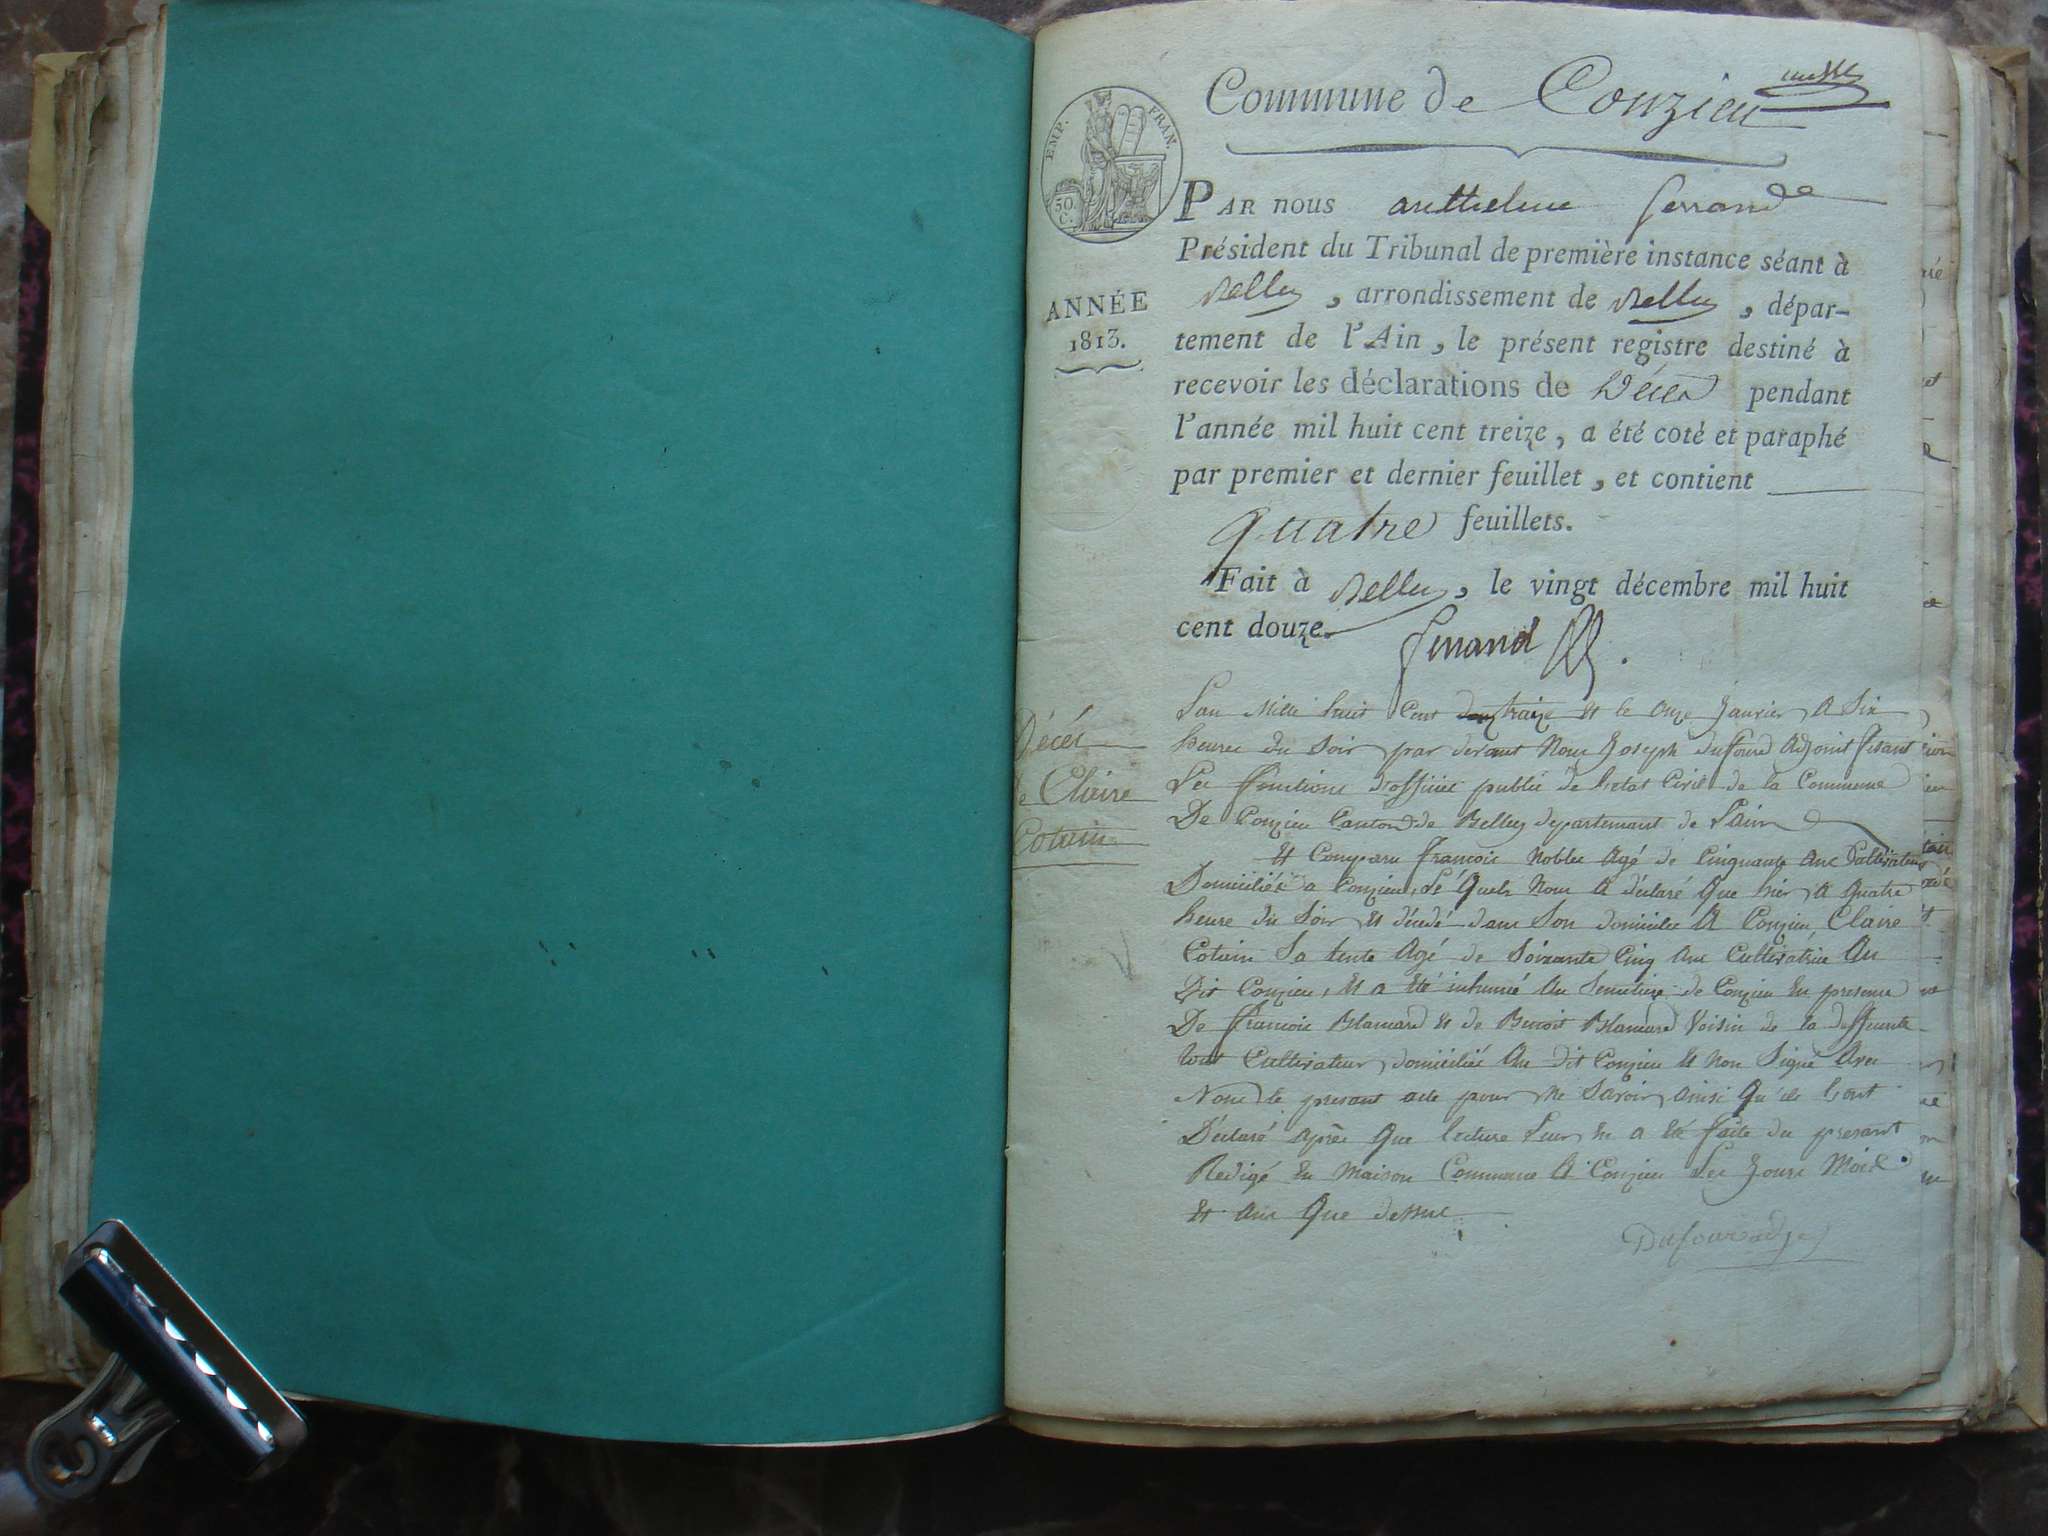 Commune de Conzieu
EMP. FRAN.
30. C.
ANNÉE
1813.
PAR nous anthelme ferrand
Président du Tribunal de première instance séant à
Belley, arrondissement de Belley, dépar-
tement de l'Ain, le présent registre destiné à
recevoir les déclarations de Décès pendant
l'année mil huit cent treize, a été coté et paraphé
par premier et dernier feuillet, et contient
quatre feuillets.
Fait à Belley, le vingt décembre mil huit
cent douze.
ferrand
Décès
de Claire
Cotuin
L'an Mille huit Cent traize et le onze Janvier A Six
heures du Soir par devant Nous Joseph duffourd Adjoint fesant
Les fonctions d'officier public de l'etat Civil de la Commune
De Conzieu Canton de Belley departemant de L'ain
Et Comparu francois Noblee Agé de Cinquante ans Cultivateur
Domicilié a Conzieu, Lé Quels Nous A déclaré Que hier A Quatre
heure du Soir Et décédé dans Son domicile A Conzieu Claire
Cotuin Sa tente Agé de Soixante Cinq Ans Cultivatrice Au
Dit Conzieu, Et a Eté inhumé Au Semetiere de Conzieu En presence
De francois Blancard Et de Benoit Blancard Voisin de la deffunte
tout Cultivateur domicilié Au dit Conzieu Et Non Signé Avec
Nous le presant acte pour Ne Savoir ainsi Qu'ils L'ont
Déclaré Après Que lecture Leur En a Eté faite du presant
Redigé En Maison Commune A Conzieu Les Jours Mois
Et Ans Que dessus
Dufour adj